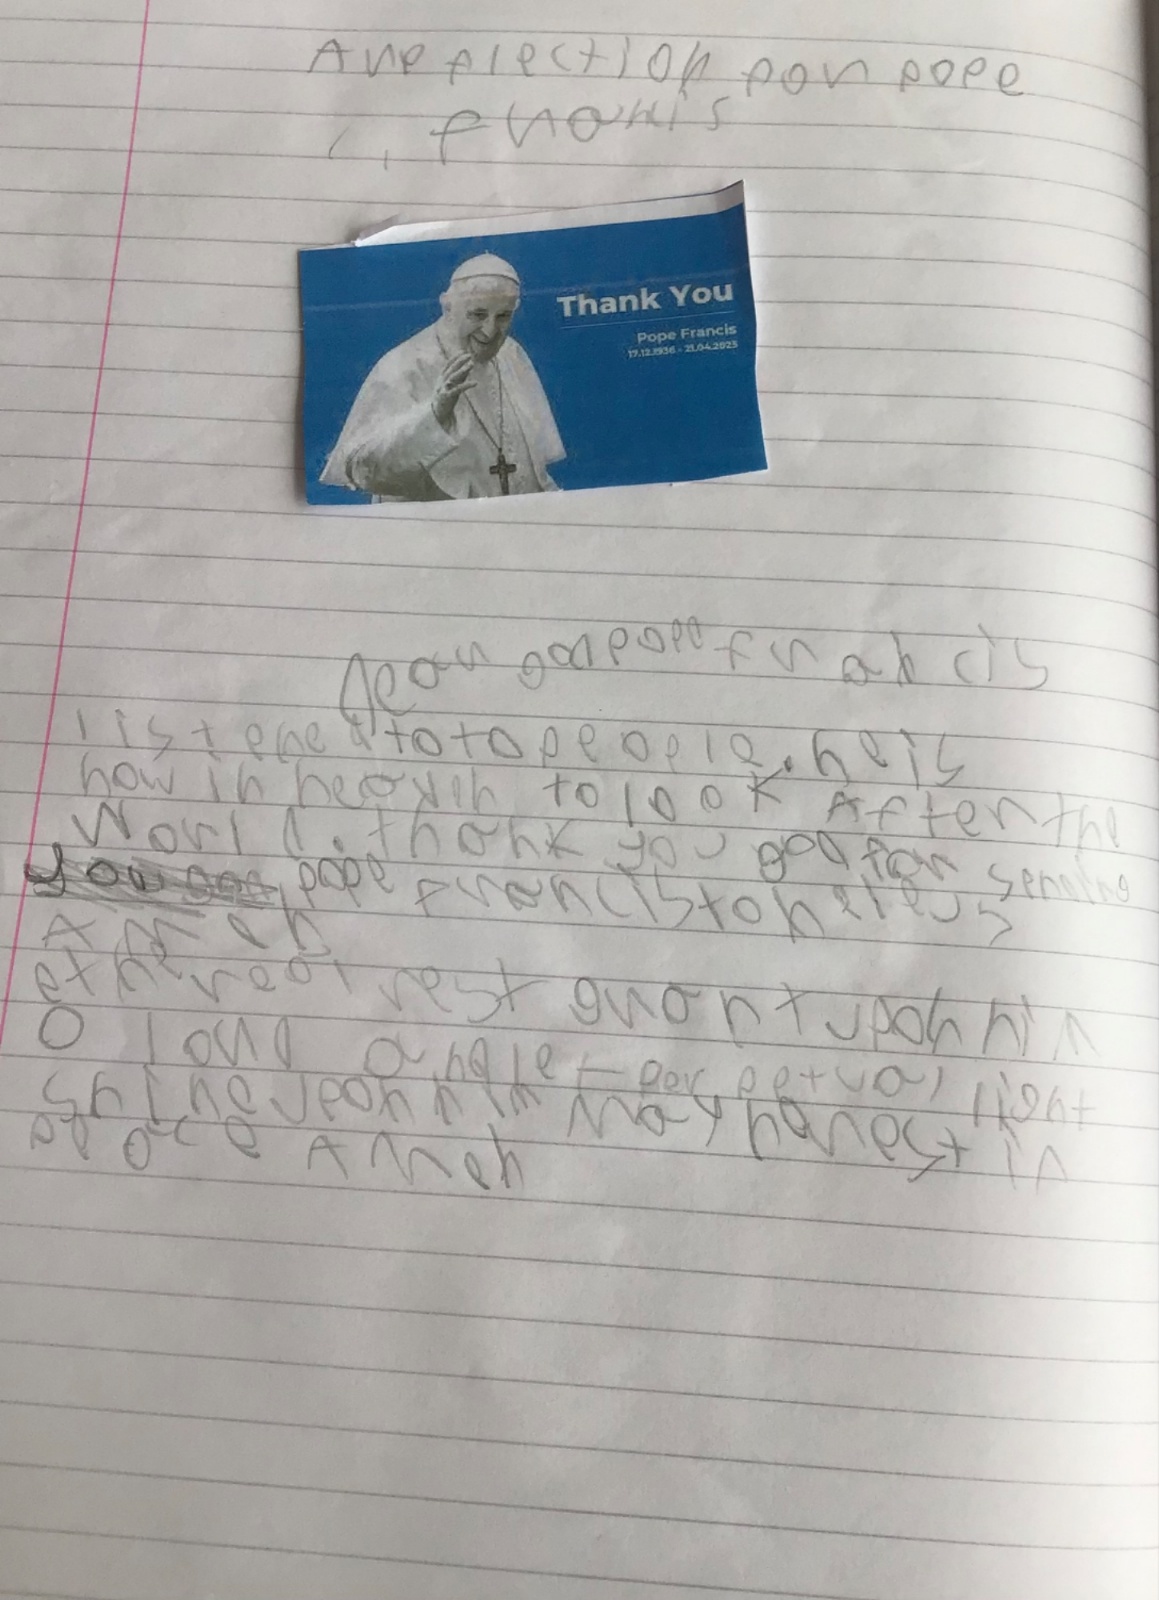 A reflection for pope
francis
Thank You
Pope Francis
17.12.1936 - 21.04.2025
Dear god pope francis
listened to to people. he is
now in heaven to look After the
World. thank you god for sending
you god pope francis to help us
Amen
eternal rest grant upon him
O lord and let perpetual light
shine upon him may he rest in
peace Amen